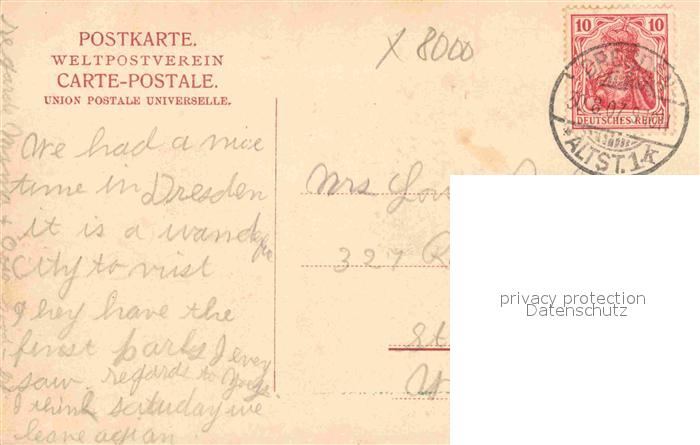 POSTKARTE.
WELTPOSTVEREIN
CARTE-POSTALE.
UNION POSTALE UNIVERSELLE.
X 8000
10 10
DEUTSCHES REICH
ALTST. 1 k
We had a nice
time in Dresden
it is a
City to visit
They have the
finest parks I ever
saw. regards to
I think satuday we
leave again
regards
Mrs
327
St
privacy protection
Datenschutz